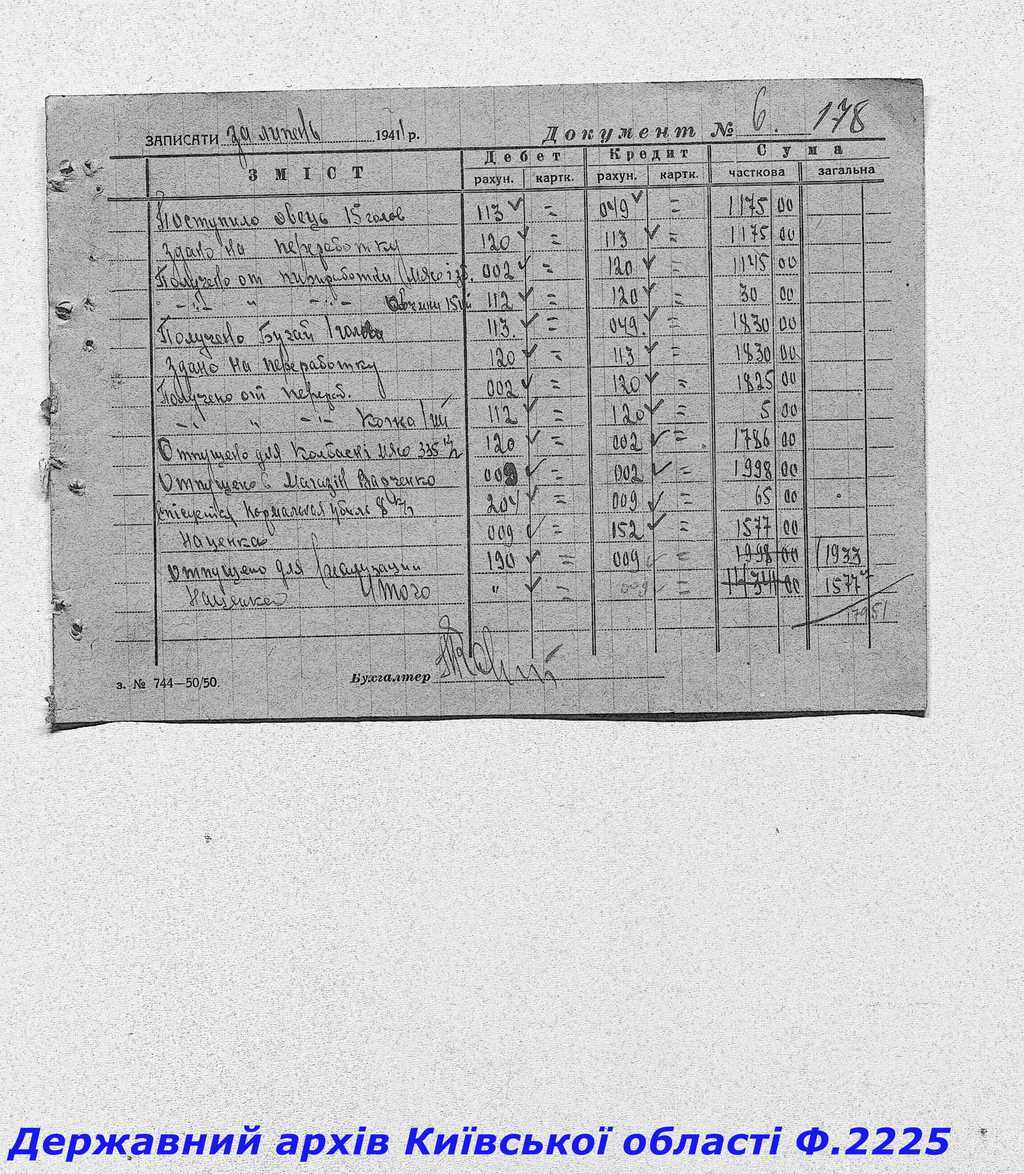 178
ЗАПИСАТИ за липень 1941 р. Документ № 6.
ЗМІСТ Дебет Кредит Сума
рахун. картк. рахун. картк. часткова загальна
Поступило овець 15 голов 113 = 049 = 1175 00
Здано на переработку 120 = 113 = 1175 00
Получено от 002 = 120 = 1145 00
-"- " -"- Овчини 15 112 = 120 = 30 00
Получено Бугай 1 голова 113. = 049. = 1830 00
Здано на переработку 120 = 113 = 1830 00
Получено от перераб. 002 = 120 = 1825 00
-"- " -"- Кожа 1 112 = 120 = 5 00
Отпущено для Колбаскі мясо 335 120 = 002 = 1786 00
Отпущено в Магазін 009 = 002 = 1998 00
Нормальная убыль 8 204 = 009 = 65 00
Наценка 009 = 152 = 1577 00
Отпущено для реализации 190 = 009 = 1998 00 1933
Наценка Итого " = 009 = 00 1577
Бухгалтер
з. № 744—50/50.
Державний архів Київської області Ф.2225